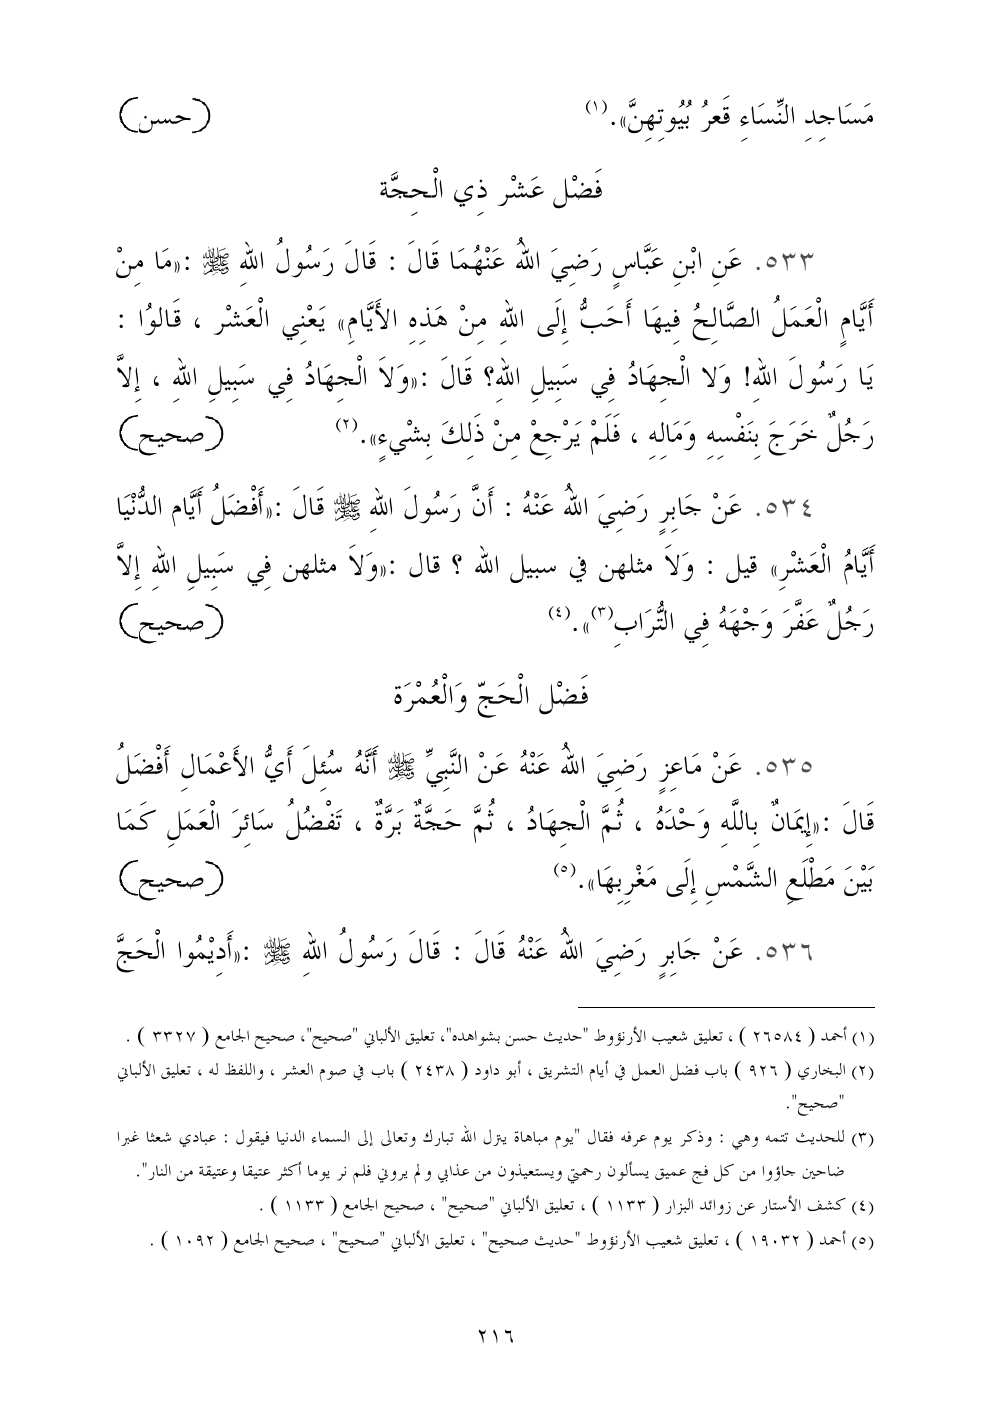 مَسَاجِدِ النِّسَاءِ قَعرُ بُيُوتِهِنَّ».(١) (حسن)
فَضْل عَشْر ذِي الْحِجَّة
٥٣٣. عَنِ ابْنِ عَبَّاسٍ رَضِيَ اللهُ عَنْهُمَا قَالَ : قَالَ رَسُولُ اللهِ ﷺ :«مَا مِنْ
أَيَّامٍ الْعَمَلُ الصَّالِحُ فِيهَا أَحَبُّ إِلَى اللهِ مِنْ هَذِهِ الأَيَّامِ» يَعْنِي الْعَشْر ، قَالوُا :
يَا رَسُولَ اللهِ! وَلا الْجِهَادُ فِي سَبِيلِ اللهِ؟ قَالَ :«وَلاَ الْجِهَادُ فِي سَبِيلِ اللهِ ، إِلاَّ
رَجُلٌ خَرَجَ بِنَفْسِهِ وَمَالِهِ ، فَلَمْ يَرْجِعْ مِنْ ذَلِكَ بِشْيءٍ».(٢) (صحيح)
٥٣٤. عَنْ جَابِرٍ رَضِيَ اللهُ عَنْهُ : أَنَّ رَسُولَ اللهِ ﷺ قَالَ :«أَفْضَلُ أَيَّام الدُّنْيَا
أَيَّامُ الْعَشْرِ» قيل : وَلاَ مثلهن في سبيل الله ؟ قال :«وَلاَ مثلهن فِي سَبِيلِ اللهِ إِلاَّ
رَجُلٌ عَفَّرَ وَجْهَهُ فِي التُّرَابِ(٣)».(٤) (صحيح)
فَضْل الْحَجّ وَالْعُمْرَة
٥٣٥. عَنْ مَاعِزٍ رَضِيَ اللهُ عَنْهُ عَنْ النَّبِيِّ ﷺ أَنَّهُ سُئِلَ أَيُّ الأَعْمَالِ أَفْضَلُ
قَالَ :«إِيمَانٌ بِاللَّهِ وَحْدَهُ ، ثُمَّ الْجِهَادُ ، ثُمَّ حَجَّةٌ بَرَّةٌ ، تَفْضُلُ سَائِرَ الْعَمَلِ كَمَا
بَيْنَ مَطْلَعِ الشَّمْسِ إِلَى مَغْرِبِهَا».(٥) (صحيح)
٥٣٦. عَنْ جَابِرٍ رَضِيَ اللهُ عَنْهُ قَالَ : قَالَ رَسُولُ اللهِ ﷺ :«أَدِيْمُوا الْحَجَّ
(١) أحمد ( ٢٦٥٨٤ ) ، تعليق شعيب الأرنؤوط "حديث حسن بشواهده"، تعليق الألباني "صحيح"، صحيح الجامع ( ٣٣٢٧ ) .
(٢) البخاري ( ٩٢٦ ) باب فضل العمل في أيام التشريق ، أبو داود ( ٢٤٣٨ ) باب في صوم العشر ، واللفظ له ، تعليق الألباني
"صحيح".
(٣) للحديث تتمه وهي : وذكر يوم عرفه فقال "يوم مباهاة ينزل الله تبارك وتعالى إلى السماء الدنيا فيقول : عبادي شعثا غبرا
ضاحين جاؤوا من كل فج عميق يسألون رحمتي ويستعيذون من عذابي و لم يروني فلم نر يوما أكثر عتيقا وعتيقة من النار".
(٤) كشف الأستار عن زوائد البزار ( ١١٣٣ ) ، تعليق الألباني "صحيح" ، صحيح الجامع ( ١١٣٣ ) .
(٥) أحمد ( ١٩٠٣٢ ) ، تعليق شعيب الأرنؤوط "حديث صحيح" ، تعليق الألباني "صحيح" ، صحيح الجامع ( ١٠٩٢ ) .
٢١٦